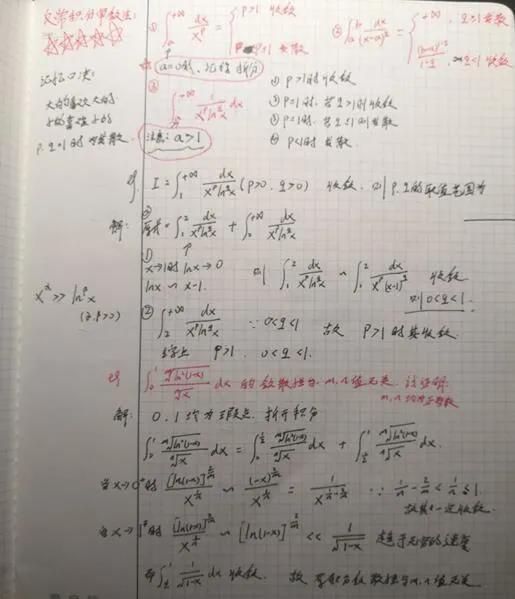 反常积分审敛法:
① ∫_a^{+∞} dx/x^p = { p>1 收敛
p≤1 发散
② ∫_a^b dx/(x-a)^q = { +∞, q≥1 发散
(b-a)^{1-q}/(1-q), q<1 收敛
a=0时,记得拆分
③ ∫_a^{+∞} 1/(x^p ln^q x) dx
注意: a>1
① p>1时收敛
② p=1时,若q>1则收敛
③ p=1时,若q≤1则发散
④ p<1时发散
记忆口诀:
p.q=1时均发散
例. I=∫_1^{+∞} dx/(x^p ln^q x) (p>0, q>0) 收敛,则p.q的取值范围为
解: 原式=∫_1^2 dx/(x^p ln^q x) + ∫_2^{+∞} dx/(x^p ln^q x)
① x→1时 lnx→0
lnx ~ x-1. 则 ∫_1^2 dx/(x^p ln^q x) ~ ∫_1^2 dx/(x^p (x-1)^q) 收敛
则 0<q<1.
② ∫_2^{+∞} dx/(x^p ln^q x) ∵ 0<q<1 故 p>1时其收敛.
x^α >> ln^β x
(α.β>0)
综上 p>1, 0<q<1.
例 ∫_0^1 \sqrt[m]{ln²(1-x)}/\sqrt[n]{x} dx 的敛散性与m,n值无关,试证明.
m,n均为正整数
解: 0.1均为瑕点,拆开积分
∫_0^1 \sqrt[m]{ln²(1-x)}/\sqrt[n]{x} dx = ∫_0^{1/2} \sqrt[m]{ln²(1-x)}/\sqrt[n]{x} dx + ∫_{1/2}^1 \sqrt[m]{ln²(1-x)}/\sqrt[n]{x} dx.
当x→0⁺时 [ln(1-x)]^{2/m}/x^{1/n} ~ (-x)^{2/m}/x^{1/n} = 1/x^{1/n-2/m} ∵ 1/n - 2/m < 1/n ≤ 1.
故其一定收敛.
当x→1⁻时 [ln(1-x)]^{2/m}/x^{1/n} ~ [ln(1-x)]^{2/m} << 1/\sqrt{1-x} 趋于无穷的速度
而∫_{1/2}^1 1/\sqrt{1-x} dx 收敛. 故原积分敛散性与m,n值无关.